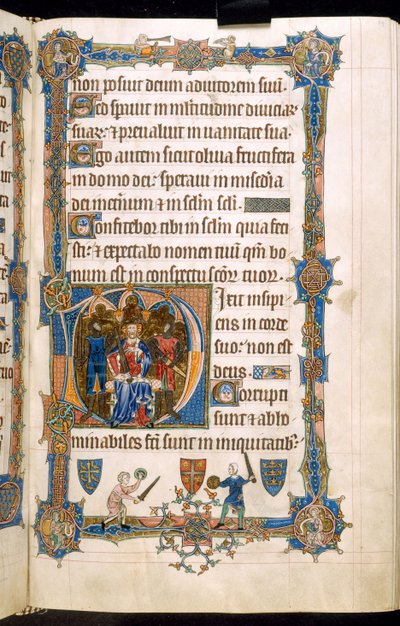 non posuit deum adiutorem suu̅.
Set sperauit in m̅ltitudine diuiciar̅
suar̅: ⁊ preualuit in uanitate sua.
Ego autem sicut oliua fructifera
in domo dei: speraui in misc̅dia
dei inet̅num ⁊ in sc̅lm sc̅li.
Confitebor tibi in sc̅lm quia feci
sti: ⁊ expectabo nomen tuu̅ qm̅ bo
num est in conspectu sc̅or̅ tuor̅.
Dixit insipi
ens in corde
suo: non est
deus.
Corrupti
sunt ⁊ abho
minabiles fc̅i sunt in iniquitatib̅: